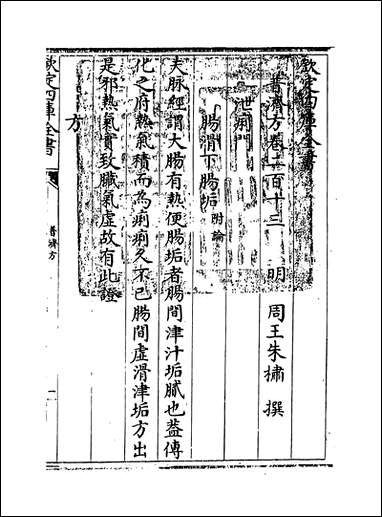 欽定四庫全書
普濟方卷二百十三
明 周王朱橚 撰
泄痢門
腸滑下腸垢 附論
夫脉經謂大腸有熱便腸垢者腸間津汁垢膩也葢傳
化之府熱氣積而為痢痢久不已腸間虚滑津垢方出
是邪熱氣實致臟氣虚故有此證
方
欽定四庫全書
普濟方